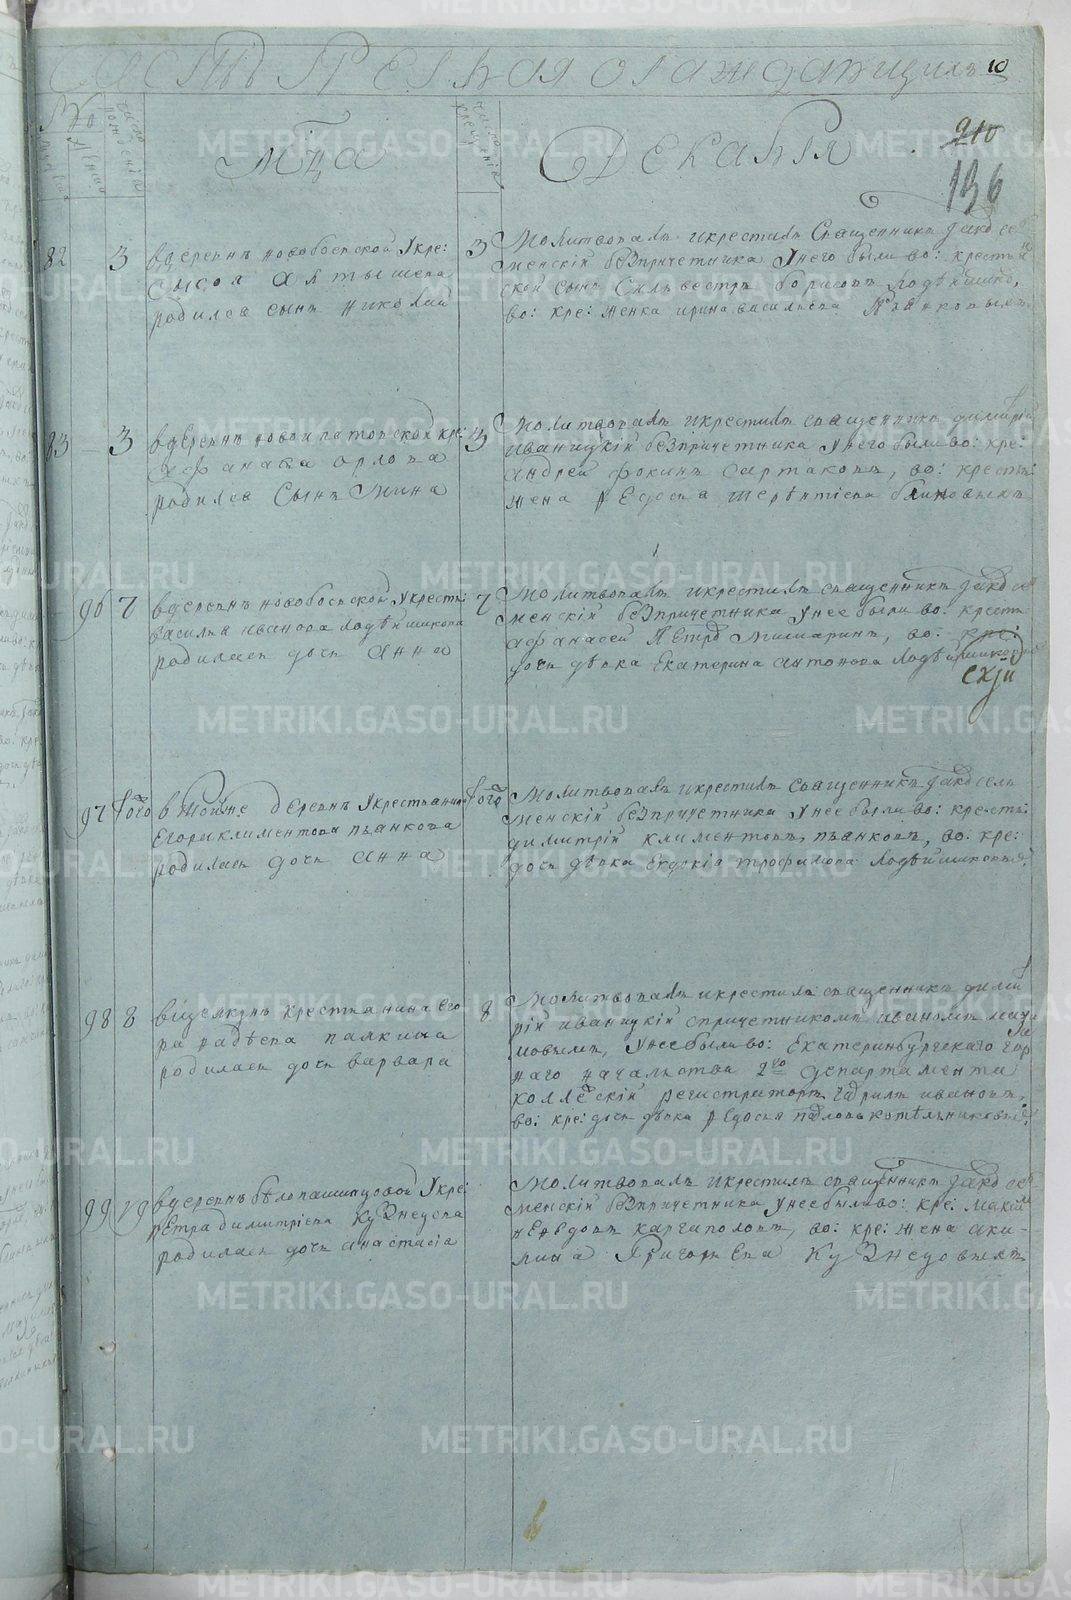 Часть первая о раждающихся 10
Мца Декабря
210
136
82 3 в деревнѣ новобоевской у кре:
сысоя алтышева
родился сынъ николай
3 Молитвовалъ и крестилъ Священникъ Iаковъ се
менскiй без причетника у него были во: крестьян
ской сынъ Сильвестръ борисовъ
во: кре: женка ирина васильева
83 3 в деревнѣ новоипатовской кре:
афанасья орлова
родился Сынъ Мина
3 Молитвовалъ и крестилъ священникъ димитрiй
иваницкiй без причетника у него были во: кре:
андрей фокинъ сартаковъ, во: крестьян:
жена Федосья терентiева блиновыхъ
96 7 в деревнѣ новобоевской у крестья:
василья иванова лодейщикова
родилась дочь Анна
7 Молитвовалъ и крестилъ священникъ Iаковъ се
менскiй без причетника у нее были во: крестья
афанасей Петровъ во: кре:
дочь дѣвка Екатерина антонова
97 того в тойже деревнѣ у крестьянина
Егора климентова пьанкова
родилась дочь Анна
того Молитвовалъ и крестилъ священникъ Iаковъ семе
менскiй без причетника у нее были во: крестья:
димитрiй климентовъ пьанковъ, во: кре:
дочь дѣвка Евдокiя трофимова
98 8 крестьянина его
ра палкина
родилась дочь варвара
8 Молитвовалъ и крестилъ священникъ димит
рiй иваницкiй с причетникомъ иваномъ
у нее были во: Екатеринбургскаго гор
наго начальства 2го департамента
коллежскiй регистраторъ гаврилъ ивановъ,
во: кре: дочь дѣвка Федосья павлова котельниковы
99 19 в деревнѣ белопашинцовой у кре:
Петра димитрiева Кузнецова
родилась дочь анастасiа
Молитвовалъ и крестилъ священникъ Iаковъ се
менскiй без причетника у нее были во: кре:
каргаполовъ, во: кре: жена аки-
лина Григорьева Кузнецовыхъ
METRIKI.GASO-URAL.RU